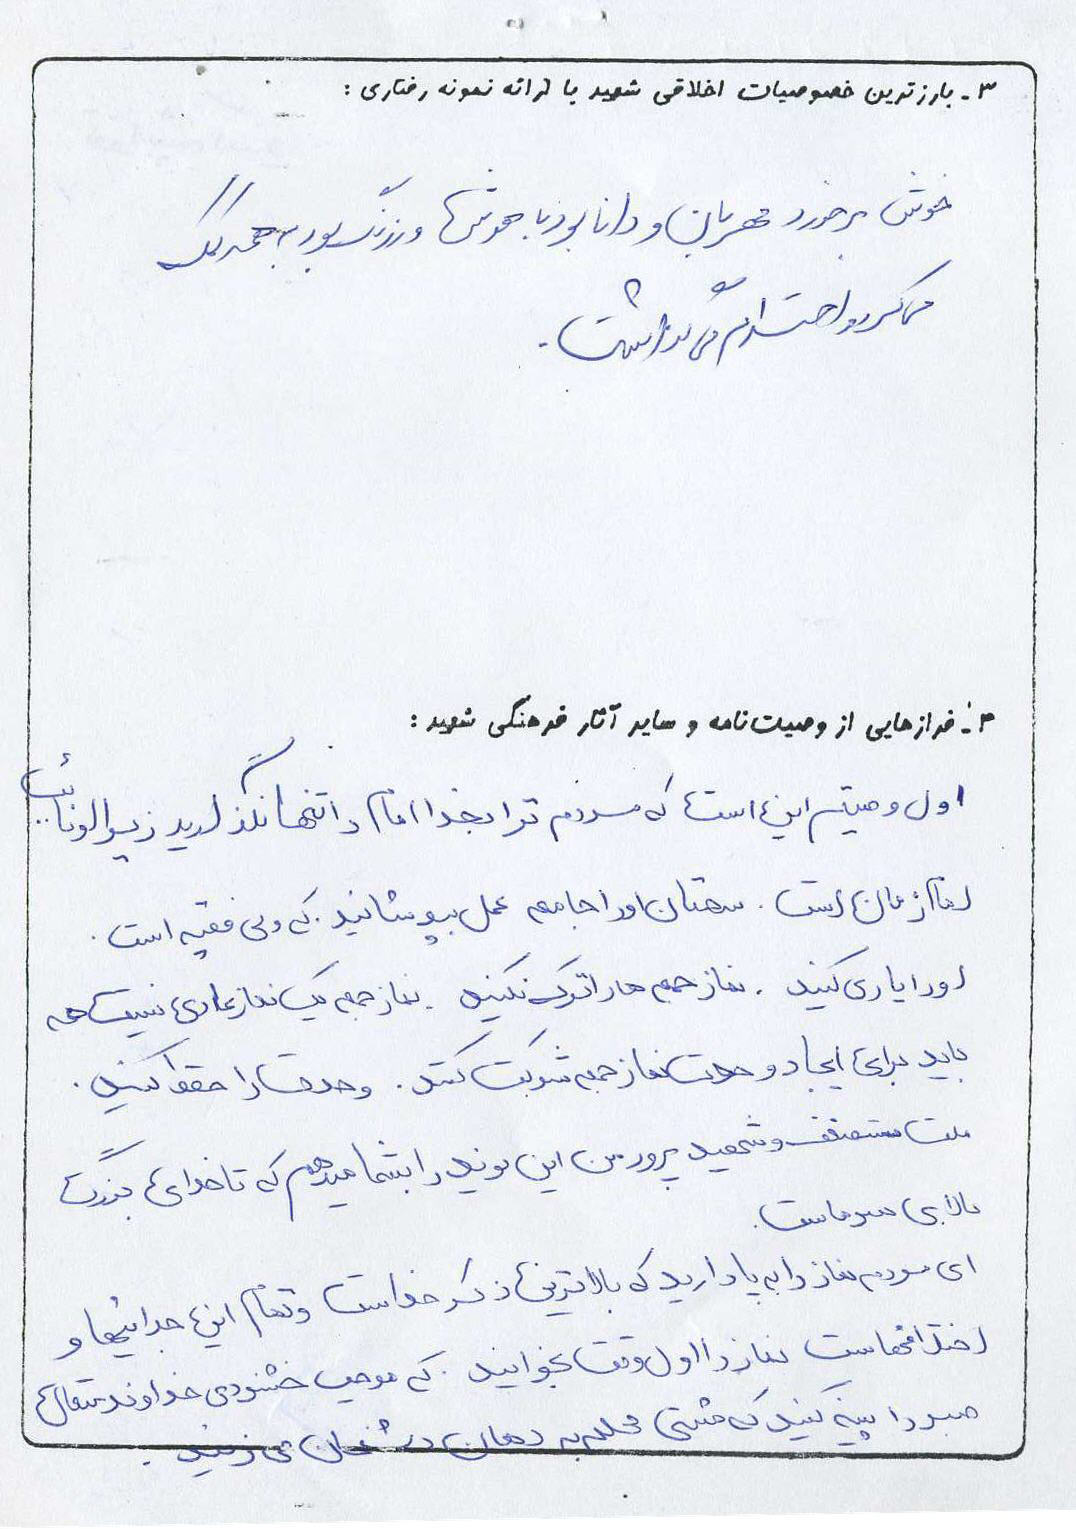 ۳ـ بارزترین خصوصیات اخلاقی شهید با ارائه نمونه رفتاری :
خوش برخورد مهربان و دانا بود باهوش و زرنگ بود به همه کمک
می کرد و احترام می گذاشت .
۴ـ فرازهایی از وصیت‌نامه و سایر آثار فرهنگی شهید :
اول وصیتم این است که مردم ترا بخدا امام را تنها نگذارید زیرا او نائب
امام زمان است . سخنان او را جامه عمل بپوشانید . که ولی فقیه است .
او را یاری کنید . نماز جمعه ها را ترک نکنید . نماز جمعه یک نماز عادی نیست همه
باید برای ایجاد وحدت نماز جمعه شرکت کنند . وحدت را حفظ کنید .
ملت مستضعف و شهید پرور من این نوید را بشما میدهم که تا خدای بزرگ
بالای سر ماست .
ای مردم نماز را به پا دارید که بالاترین ذکر خداست و تمام این جدائیها و
اختلافهاست نماز را اول وقت بخوانید . که موجب خشنودی خداوند متعال
صبر را پیشه کنید که مشتی محکم به دهان دشمنان می زنید .